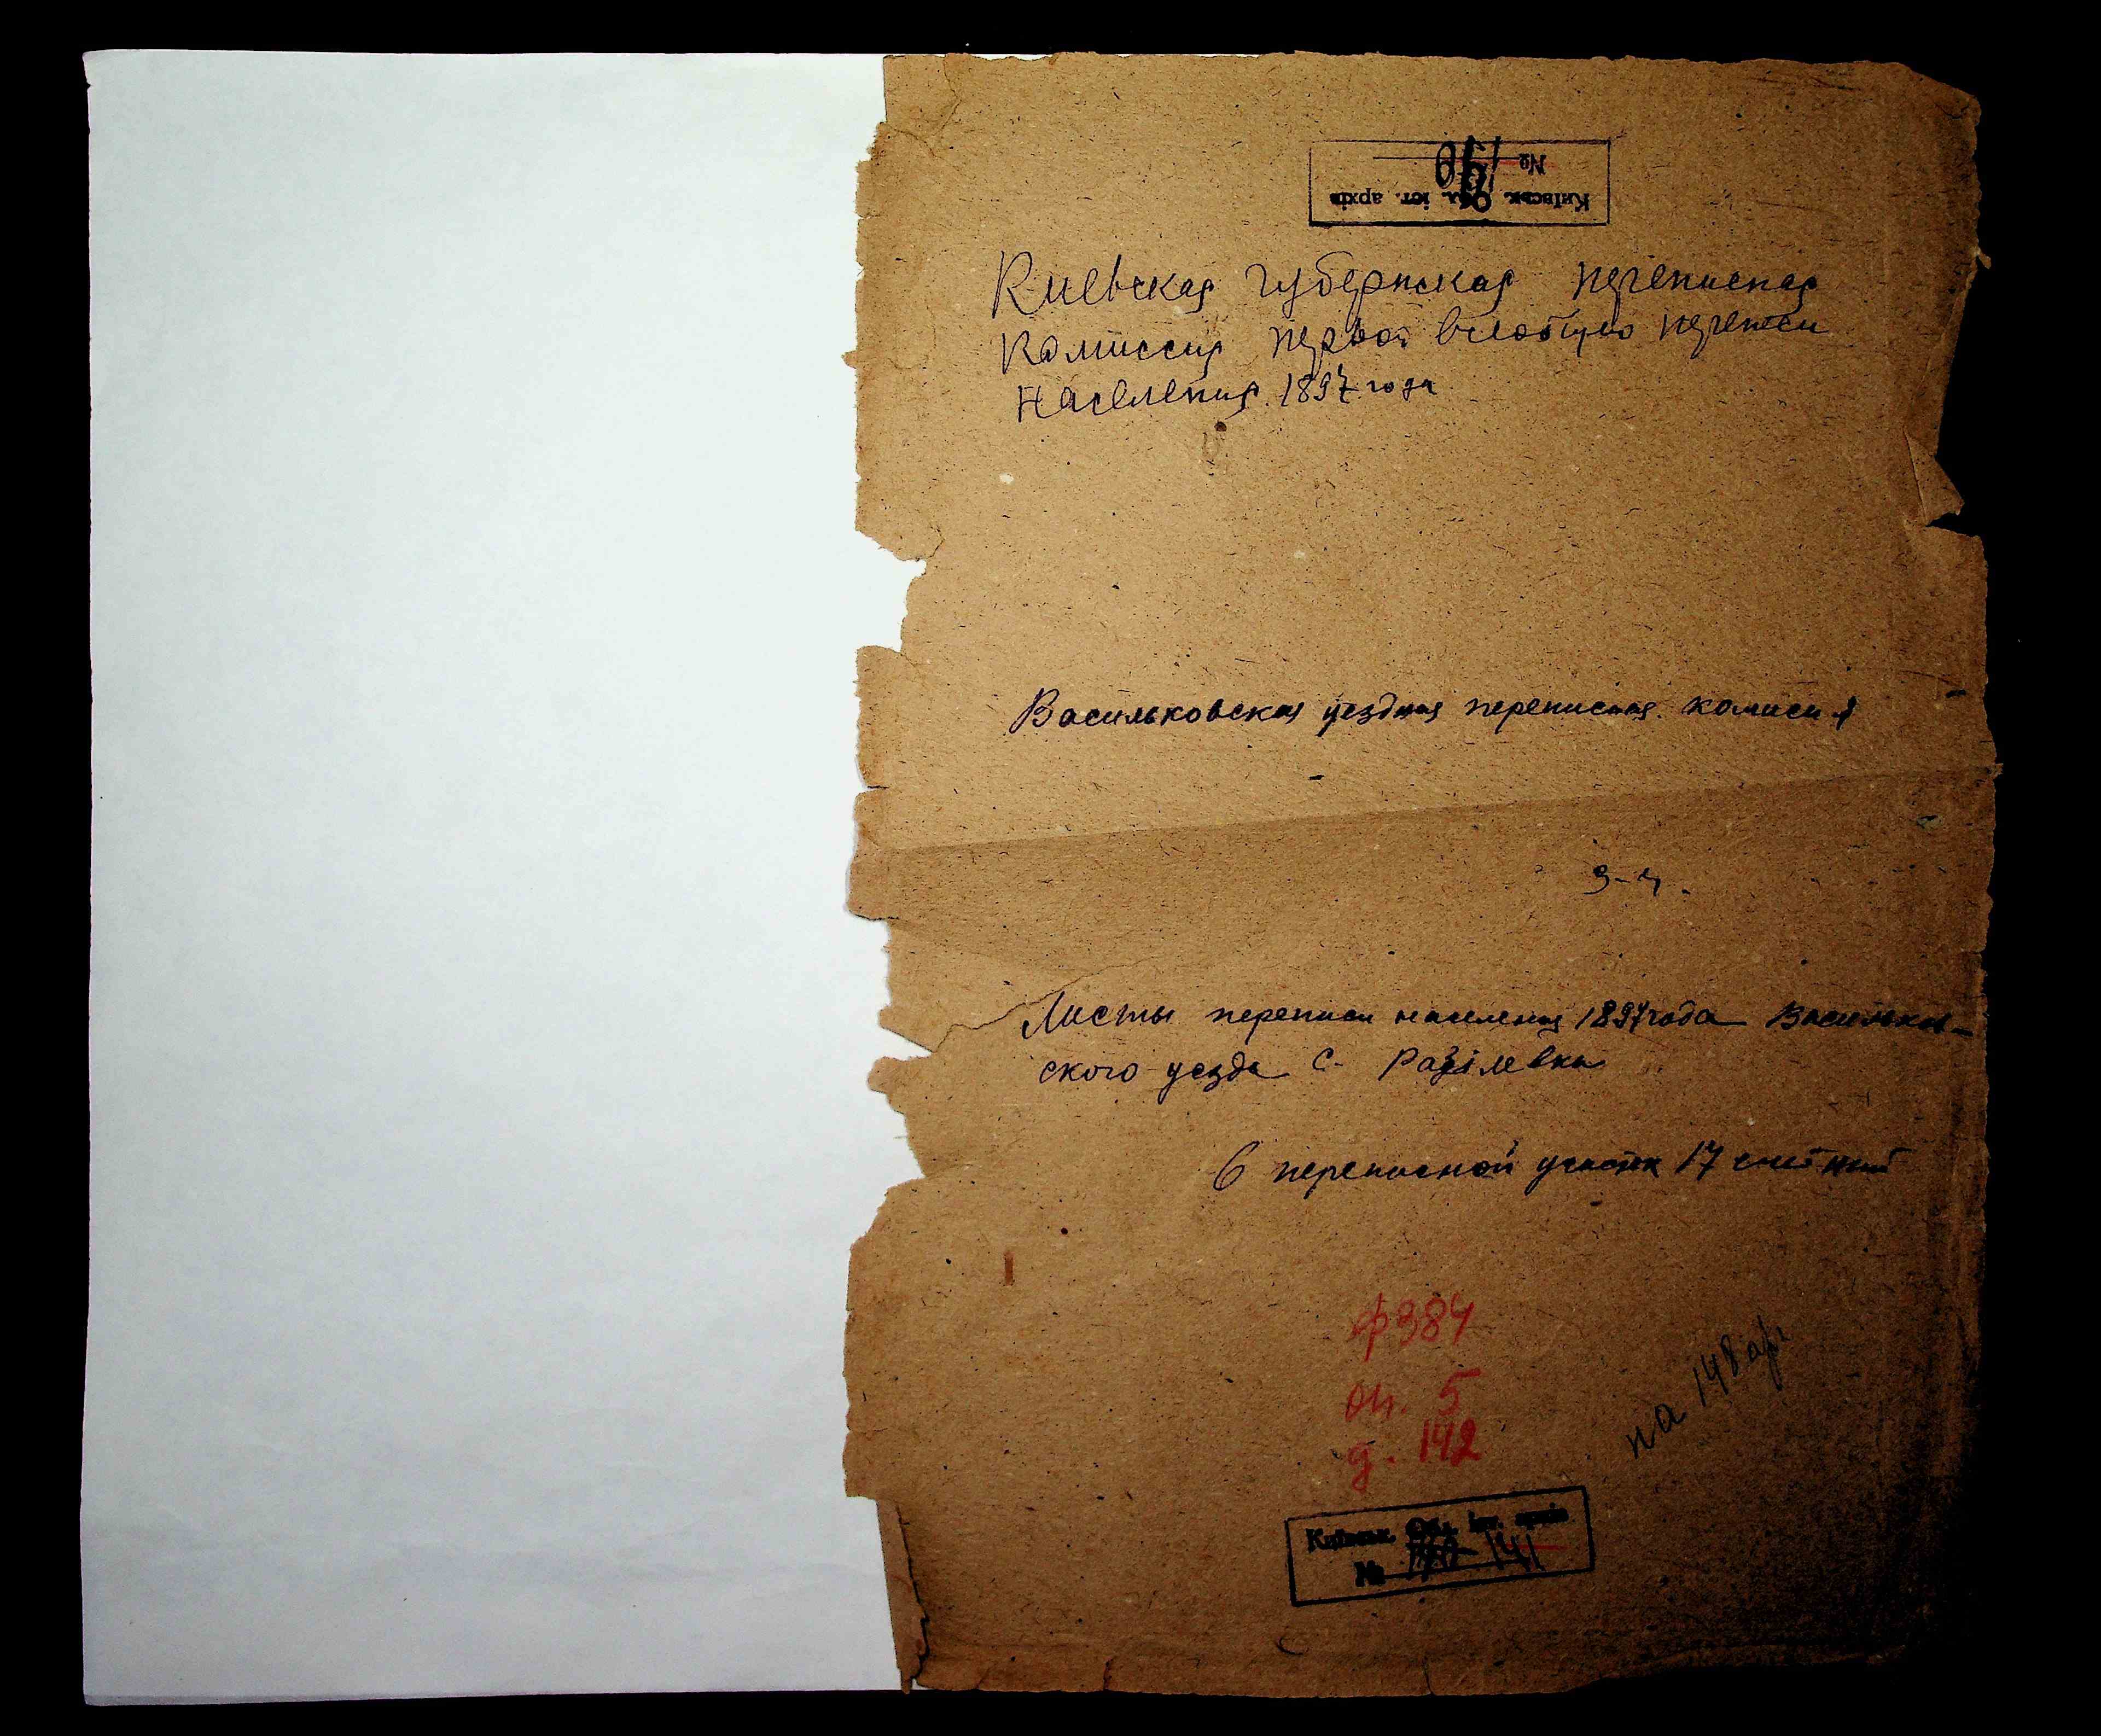 Київськ. Обл. іст. архів
№
Киевская губернская переписная
Комиссия первой всеобщей переписи
населения 1897 года
Васильковская уездная переписная комисия
Листы переписи населения 1897 года Васильков-
ского уезда С.
6 переписной участок 17 счетный
ф 384
оп. 5
д. 142
на 148 арк
Київськ. Обл. іст. архів
№ 141